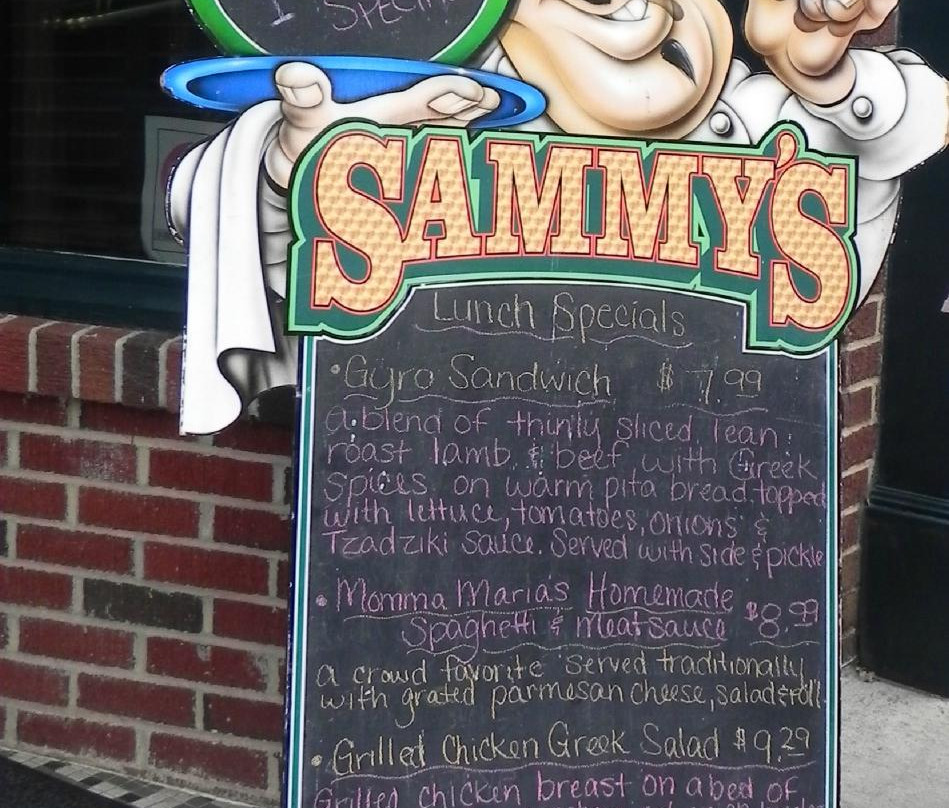 SPECIAL
SAMMY'S
Lunch Specials
• Gyro Sandwich $7.99
a blend of thinly sliced lean
roast lamb & beef with Greek
spices on warm pita bread topped
with lettuce, tomatoes, onions &
Tzadziki sauce. Served with side & pickle
• Momma Maria's Homemade
Spaghetti & Meatsauce $8.99
a crowd favorite served traditionally
with grated parmesan cheese, salad & roll
• Grilled Chicken Greek Salad $9.29
Grilled chicken breast on a bed of